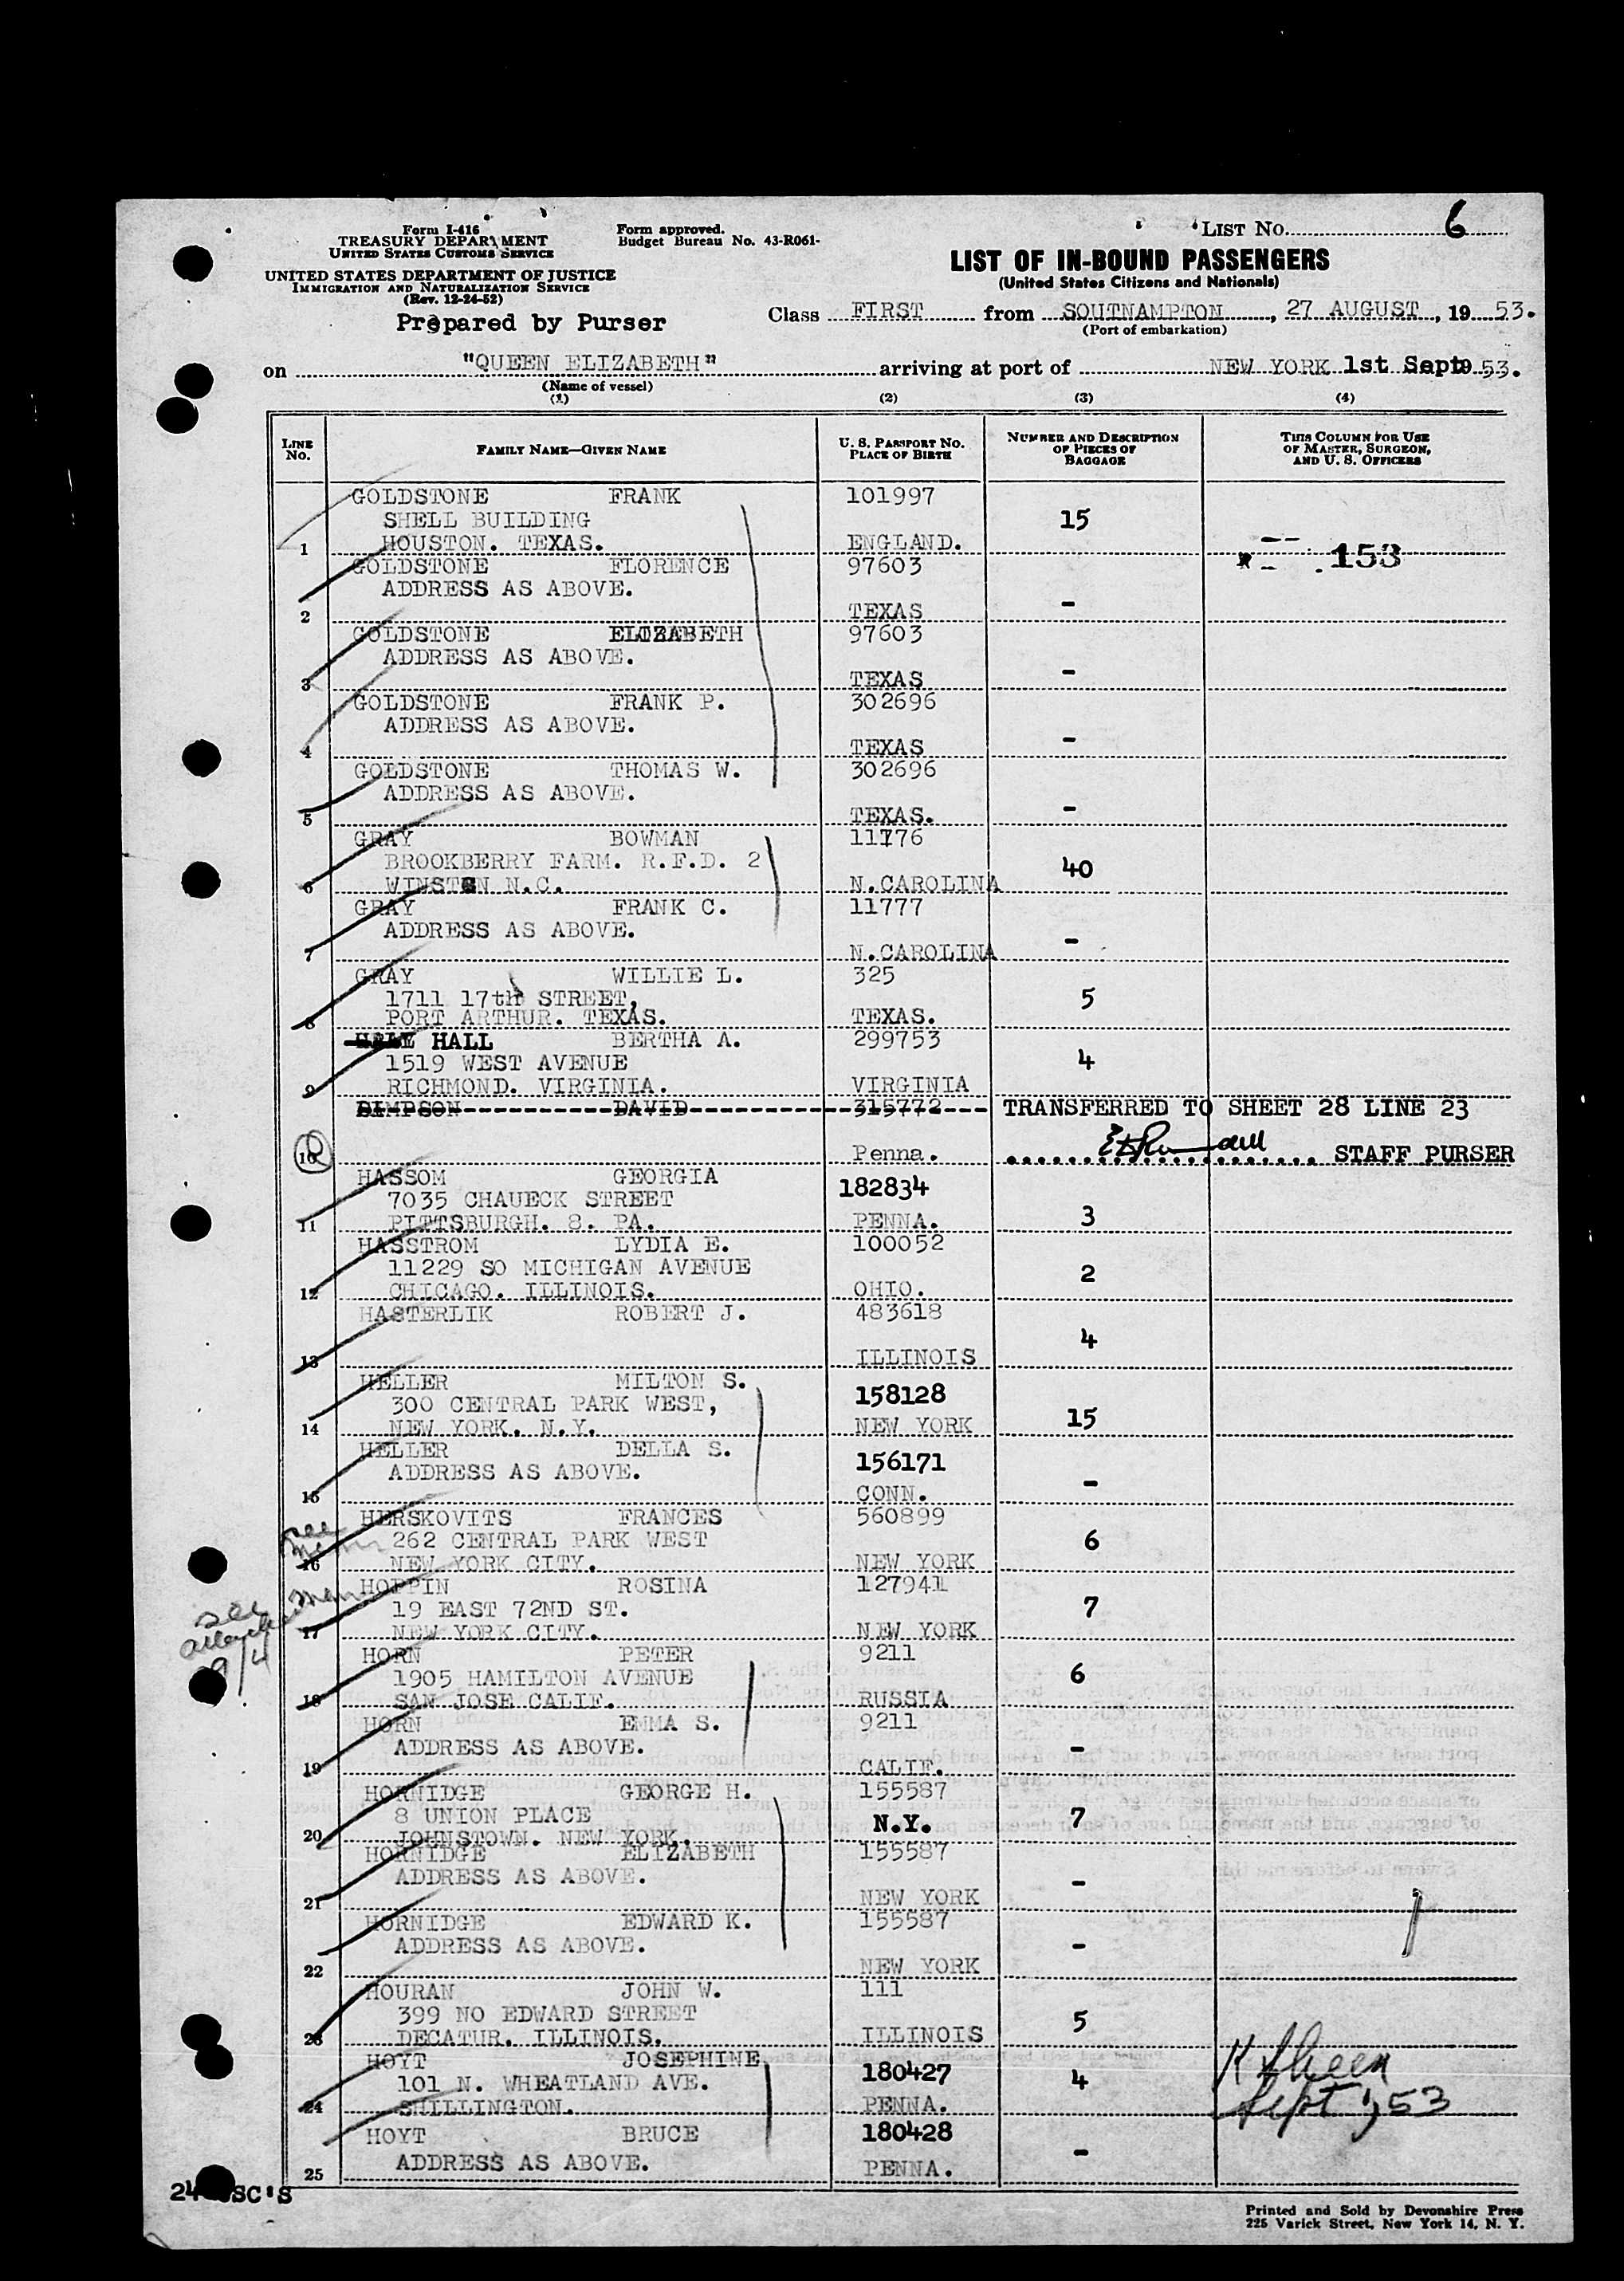 Form I-416
TREASURY DEPARTMENT
UNITED STATES CUSTOMS SERVICE
UNITED STATES DEPARTMENT OF JUSTICE
IMMIGRATION AND NATURALIZATION SERVICE
(Rev. 12-24-52)
Prepared by Purser
Form approved.
Budget Bureau No. 43-R061-
LIST NO. 6
LIST OF IN-BOUND PASSENGERS
(United States Citizens and Nationals)
Class FIRST from SOUTNAMPTON, 27 AUGUST, 19 53.
(Port of embarkation)
on "QUEEN ELIZABETH" arriving at port of NEW YORK 1st Sept 53.
(Name of vessel)
(1) (2) (3) (4)
LINE NO. FAMILY NAME—GIVEN NAME U. S. PASSPORT NO. PLACE OF BIRTH NUMBER AND DESCRIPTION OF PIECES OF BAGGAGE THIS COLUMN FOR USE OF MASTER, SURGEON, AND U. S. OFFICERS
GOLDSTONE FRANK 101997
SHELL BUILDING 15
1 HOUSTON. TEXAS. ENGLAND.
153
GOLDSTONE FLORENCE 97603
ADDRESS AS ABOVE. -
2 TEXAS
GOLDSTONE ELIZABETH 97603
ADDRESS AS ABOVE. -
3 TEXAS
GOLDSTONE FRANK P. 302696
ADDRESS AS ABOVE. -
4 TEXAS
GOLDSTONE THOMAS W. 302696
ADDRESS AS ABOVE. -
5 TEXAS.
GRAY BOWMAN 11776
BROOKBERRY FARM. R.F.D. 2 40
6 WINSTON N.C. N.CAROLINA
GRAY FRANK C. 11777
ADDRESS AS ABOVE. -
7 N.CAROLINA
GRAY WILLIE L. 325
1711 17th STREET, 5
8 PORT ARTHUR. TEXAS. TEXAS.
HALL BERTHA A. 299753
1519 WEST AVENUE 4
9 RICHMOND. VIRGINIA. VIRGINIA
SIMPSON DAVID 315772 TRANSFERRED TO SHEET 28 LINE 23
10 Penna. STAFF PURSER
HASSOM GEORGIA 182834
7035 CHAUECK STREET 3
11 PITTSBURGH. 8. PA. PENNA.
HASSTROM LYDIA E. 100052
11229 SO MICHIGAN AVENUE 2
12 CHICAGO. ILLINOIS. OHIO.
HASTERLIK ROBERT J. 483618
4
13 ILLINOIS
HELLER MILTON S. 158128
300 CENTRAL PARK WEST, 15
14 NEW YORK. N.Y. NEW YORK
HELLER DELLA S. 156171
ADDRESS AS ABOVE. -
15 CONN.
HERSKOVITS FRANCES 560899
see 262 CENTRAL PARK WEST 6
16 NEW YORK CITY. NEW YORK
HOPPIN ROSINA 127941
see 19 EAST 72ND ST. 7
17 NEW YORK CITY. NEW YORK
9/4
HORN PETER 9211
1905 HAMILTON AVENUE 6
18 SAN JOSE CALIF. RUSSIA
HORN EMMA S. 9211
ADDRESS AS ABOVE. -
19 CALIF.
HORNIDGE GEORGE H. 155587
8 UNION PLACE N.Y. 7
20 JOHNSTOWN. NEW YORK.
HORNIDGE ELIZABETH 155587
ADDRESS AS ABOVE. -
21 NEW YORK
HORNIDGE EDWARD K. 155587
ADDRESS AS ABOVE. -
22 NEW YORK
HOURAN JOHN W. 111
399 NO EDWARD STREET 5
23 DECATUR. ILLINOIS. ILLINOIS
HOYT JOSEPHINE 180427
101 N. WHEATLAND AVE. 4
24 SHILLINGTON. PENNA.
K Sheen
Sept 1, 53
HOYT BRUCE 180428
ADDRESS AS ABOVE. -
25 PENNA.
Printed and Sold by Devonshire Press
225 Varick Street, New York 14, N. Y.